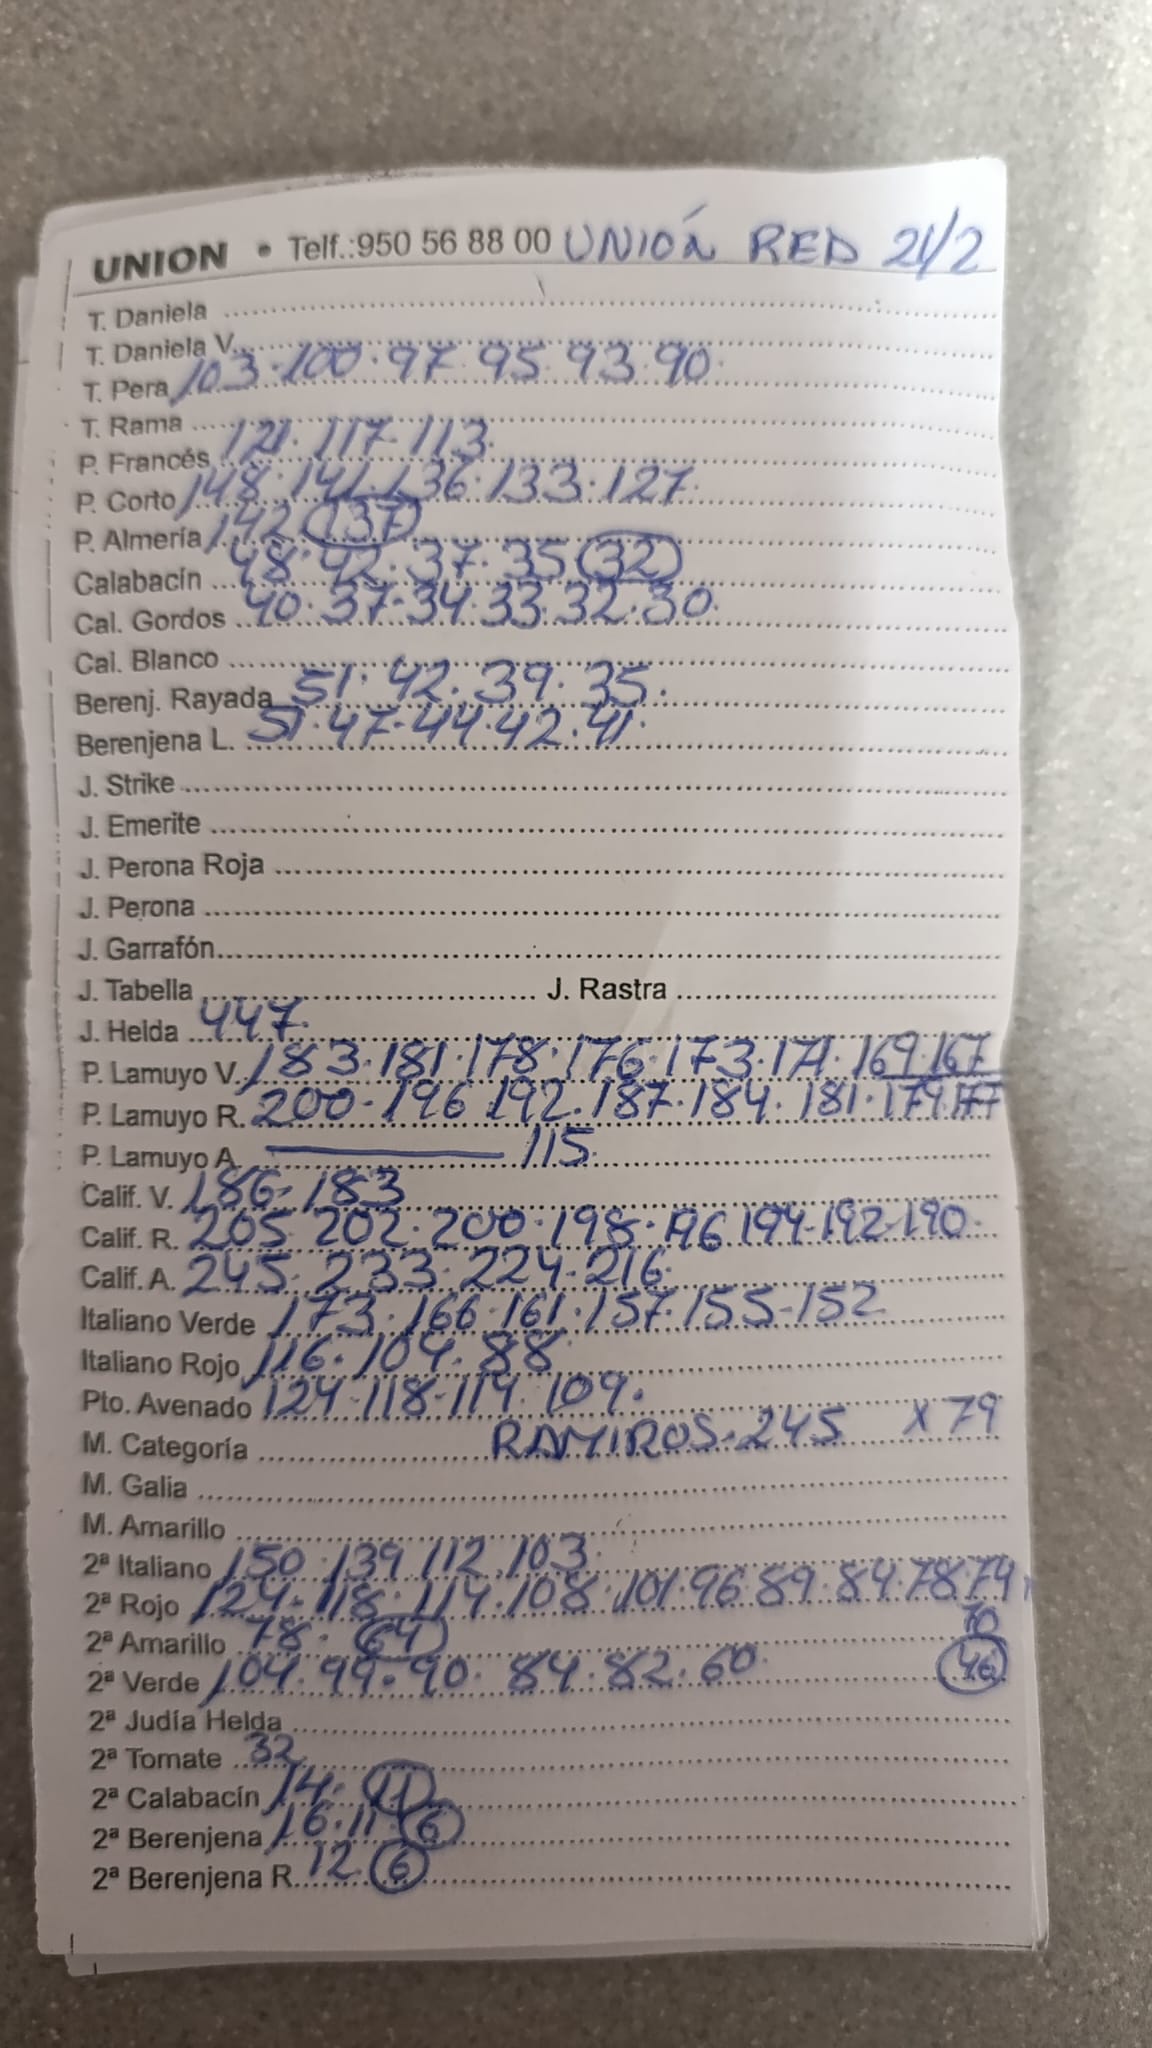 UNION • Telf.:950 56 88 00 UNIÓN RED 21/2
T. Daniela
T. Daniela V.
T. Pera 103·100·97·95·93·90·
T. Rama
P. Francés 121·117·113·
P. Corto 148·141·136·133·127·
P. Almería 142·(137)
Calabacín 48·42·37·35·(32)
Cal. Gordos 40·37·34·33·32·30·
Cal. Blanco
Berenj. Rayada 51·42·39·35·
Berenjena L. 51·47·44·42·41·
J. Strike
J. Emerite
J. Perona Roja
J. Perona
J. Garrafón
J. Tabella J. Rastra
J. Helda 447·
P. Lamuyo V. 183·181·178·176·173·171·169·167
P. Lamuyo R. 200·196·192·187·184·181·179·177
P. Lamuyo A. 115·
Calif. V. 186·183
Calif. R. 205·202·200·198·196·194·192·190·
Calif. A. 245·233·224·216·
Italiano Verde 173·166·161·157·155·152
Italiano Rojo 116·104·88
Pto. Avenado 124·118·114·109·
M. Categoría RAMIROS·245 X 79
M. Galia
M. Amarillo
2ª Italiano 150·139·112·103·
2ª Rojo 124·118·114·108·101·96·89·84·78·74·
70
2ª Amarillo 78·(64)
2ª Verde 104·99·90·84·82·60· (46)
2ª Judía Helda
2ª Tomate 32
2ª Calabacín 14·(11)
2ª Berenjena 16·11·(6)
2ª Berenjena R. 12·(6)